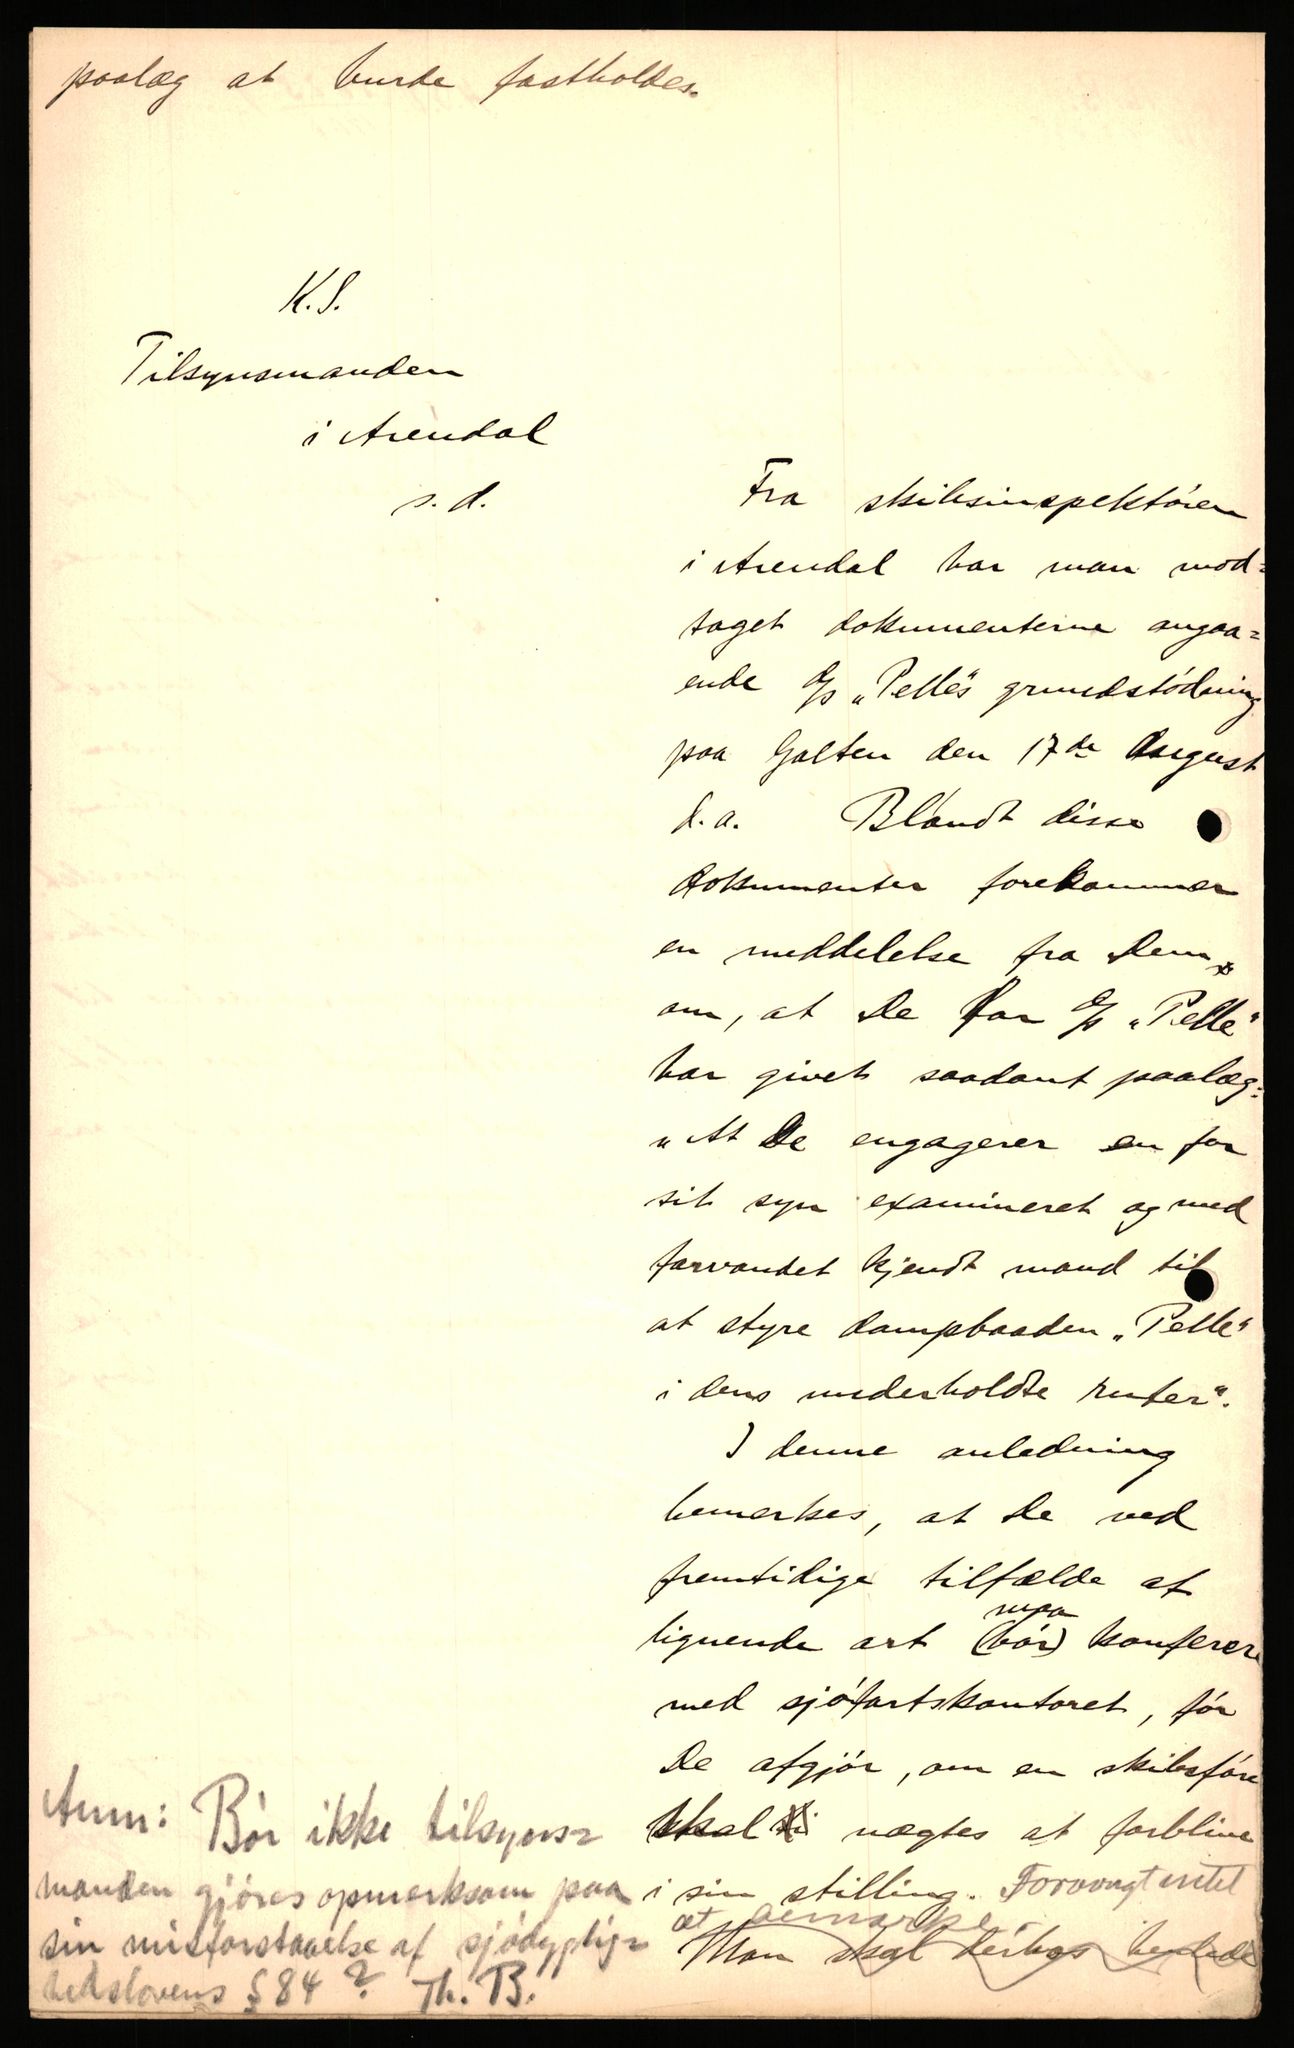 paalæg at burde fastholdes.
K. S.
Tilsynsmanden
i Arendal
s. d.
Fra skibsinspektøren
i Arendal har man mod=
taget dokumenterne angaa=
ende d/s „Pelle“s grundstødning
paa Galten den 17de August
d. a. Blandt disse
dokumenter forekommer
en meddelelse fra Dem
om, at De for d/s „Pelle“
har givet saadant paalæg:
„At De engagerer en for
sit syn examineret og med
farvandet kjendt mand til
at styre dampbaaden „Pelle“
i dens underholdte ruter“.
I denne anledning
bemerkes, at De ved
fremtidige tilfælde af
maa
lignende art (bør) konferere
med sjøfartskontoret, før
De afgjør, om en skibsføre
skal nægtes at forblive
i sin stilling. Forøvrigt intet
at bemærke.
Man skal derhos bede
Anm: Bør ikke tilsyns=
manden gjøres opmerksom paa
sin misforstaaelse af sjødyglig=
hedslovens § 84? Th. B.